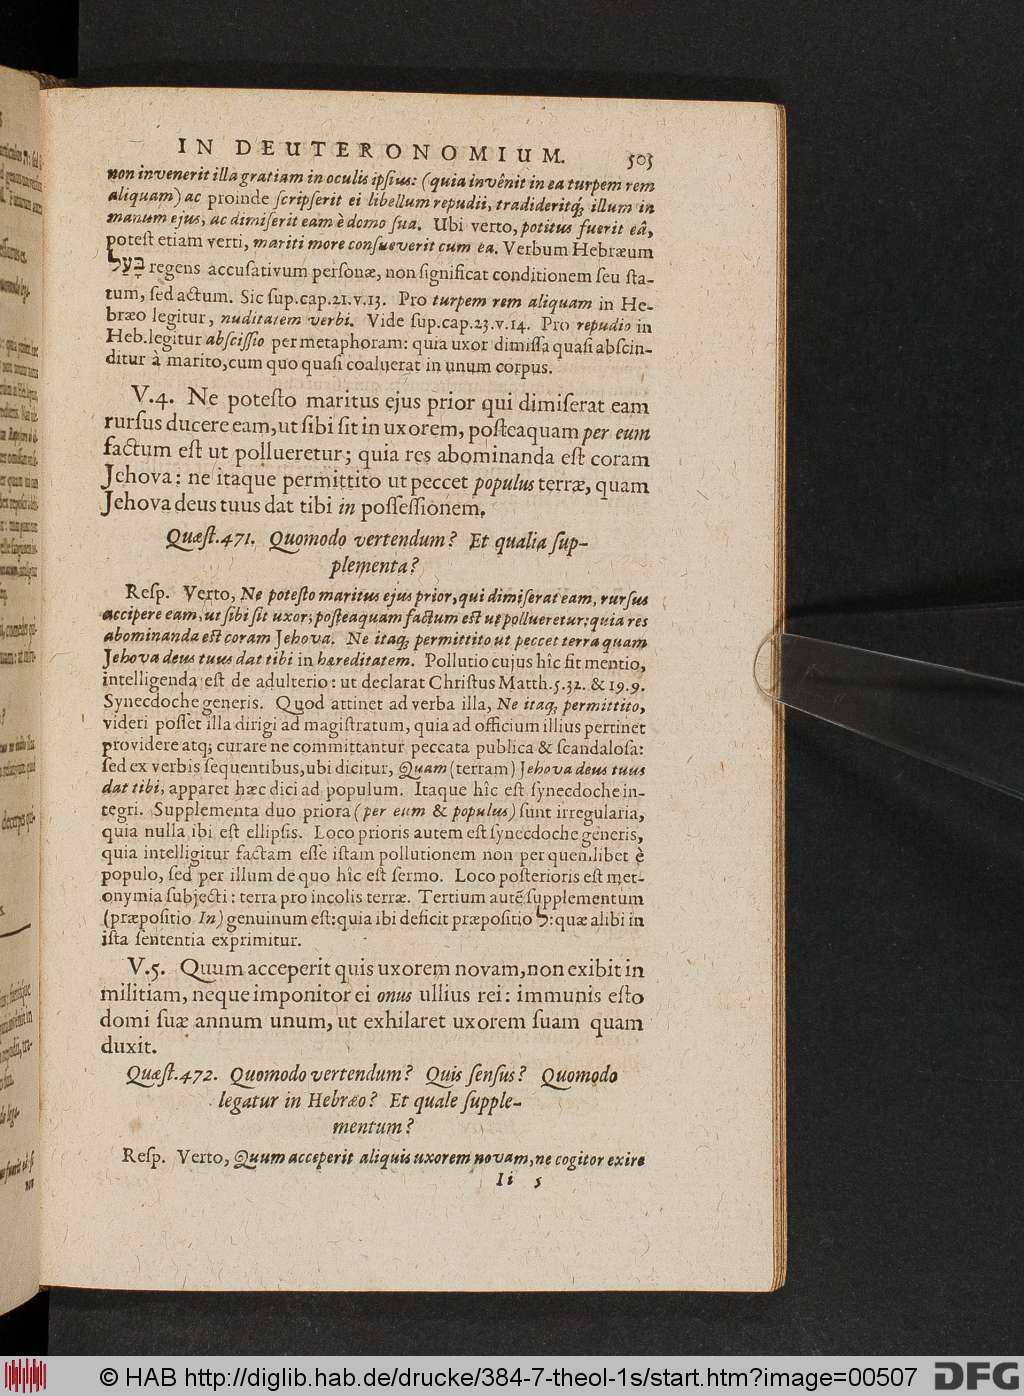 IN DEUTERONOMIUM. 503
non invenerit illa gratiam in oculis ipsius: (quia invênit in ea turpem rem
aliquam) ac proinde scripserit ei libellum repudii, tradideritq; illum in
manum ejus, ac dimiserit eam è domo sua. Ubi verto, potitus fuerit eâ,
potest etiam verti, mariti more consueverit cum ea. Verbum Hebræum
בָּעַל regens accusativum personæ, non significat conditionem seu sta-
tum, sed actum. Sic sup.cap.21.v.13. Pro turpem rem aliquam in He-
bræo legitur, nuditatem verbi. Vide sup.cap.23.v.14. Pro repudio in
Heb.legitur abscissio per metaphoram: quia uxor dimissa quasi abscin-
ditur à marito, cum quo quasi coaluerat in unum corpus.
V.4. Ne potesto maritus ejus prior qui dimiserat eam
rursus ducere eam, ut sibi sit in uxorem, posteaquam per eum
factum est ut pollueretur; quia res abominanda est coram
Jehova: ne itaque permittito ut peccet populus terræ, quam
Jehova deus tuus dat tibi in possessionem.
Quæst.471. Quomodo vertendum? Et qualia sup-
plementa?
Resp. Verto, Ne potesto maritus ejus prior, qui dimiserat eam, rursus
accipere eam, ut sibi sit uxor; posteaquam factum est ut pollueretur: quia res
abominanda est coram Jehova. Ne itaq; permittito ut peccet terra quam
Jehova deus tuus dat tibi in hæreditatem. Pollutio cujus hîc fit mentio,
intelligenda est de adulterio: ut declarat Christus Matth.5.32. & 19.9.
Synecdoche generis. Quod attinet ad verba illa, Ne itaq; permittito,
videri posset illa dirigi ad magistratum, quia ad officium illius pertinet
providere atq; curare ne committantur peccata publica & scandalosa:
sed ex verbis sequentibus, ubi dicitur, Quam (terram) Jehova deus tuus
dat tibi, apparet hæc dici ad populum. Itaque hîc est synecdoche in-
tegri. Supplementa duo priora (per eum & populus) sunt irregularia,
quia nulla ibi est ellipsis. Loco prioris autem est synecdoche generis,
quia intelligitur factam esse istam pollutionem non per quemlibet è
populo, sed per illum de quo hîc est sermo. Loco posterioris est met-
onymia subjecti: terra pro incolis terræ. Tertium autẽ supplementum
(præpositio In) genuinum est: quia ibi deficit præpositio ל: quæ alibi in
ista sententia exprimitur.
V.5. Quum acceperit quis uxorem novam, non exibit in
militiam, neque imponitor ei onus ullius rei: immunis esto
domi suæ annum unum, ut exhilaret uxorem suam quam
duxit.
Quæst.472. Quomodo vertendum? Quis sensus? Quomodo
legatur in Hebræo? Et quale supple-
mentum?
Resp. Verto, Quum acceperit aliquis uxorem novam, ne cogitor exire
Ii 5
© HAB http://diglib.hab.de/drucke/384-7-theol-1s/start.htm?image=00507 DFG